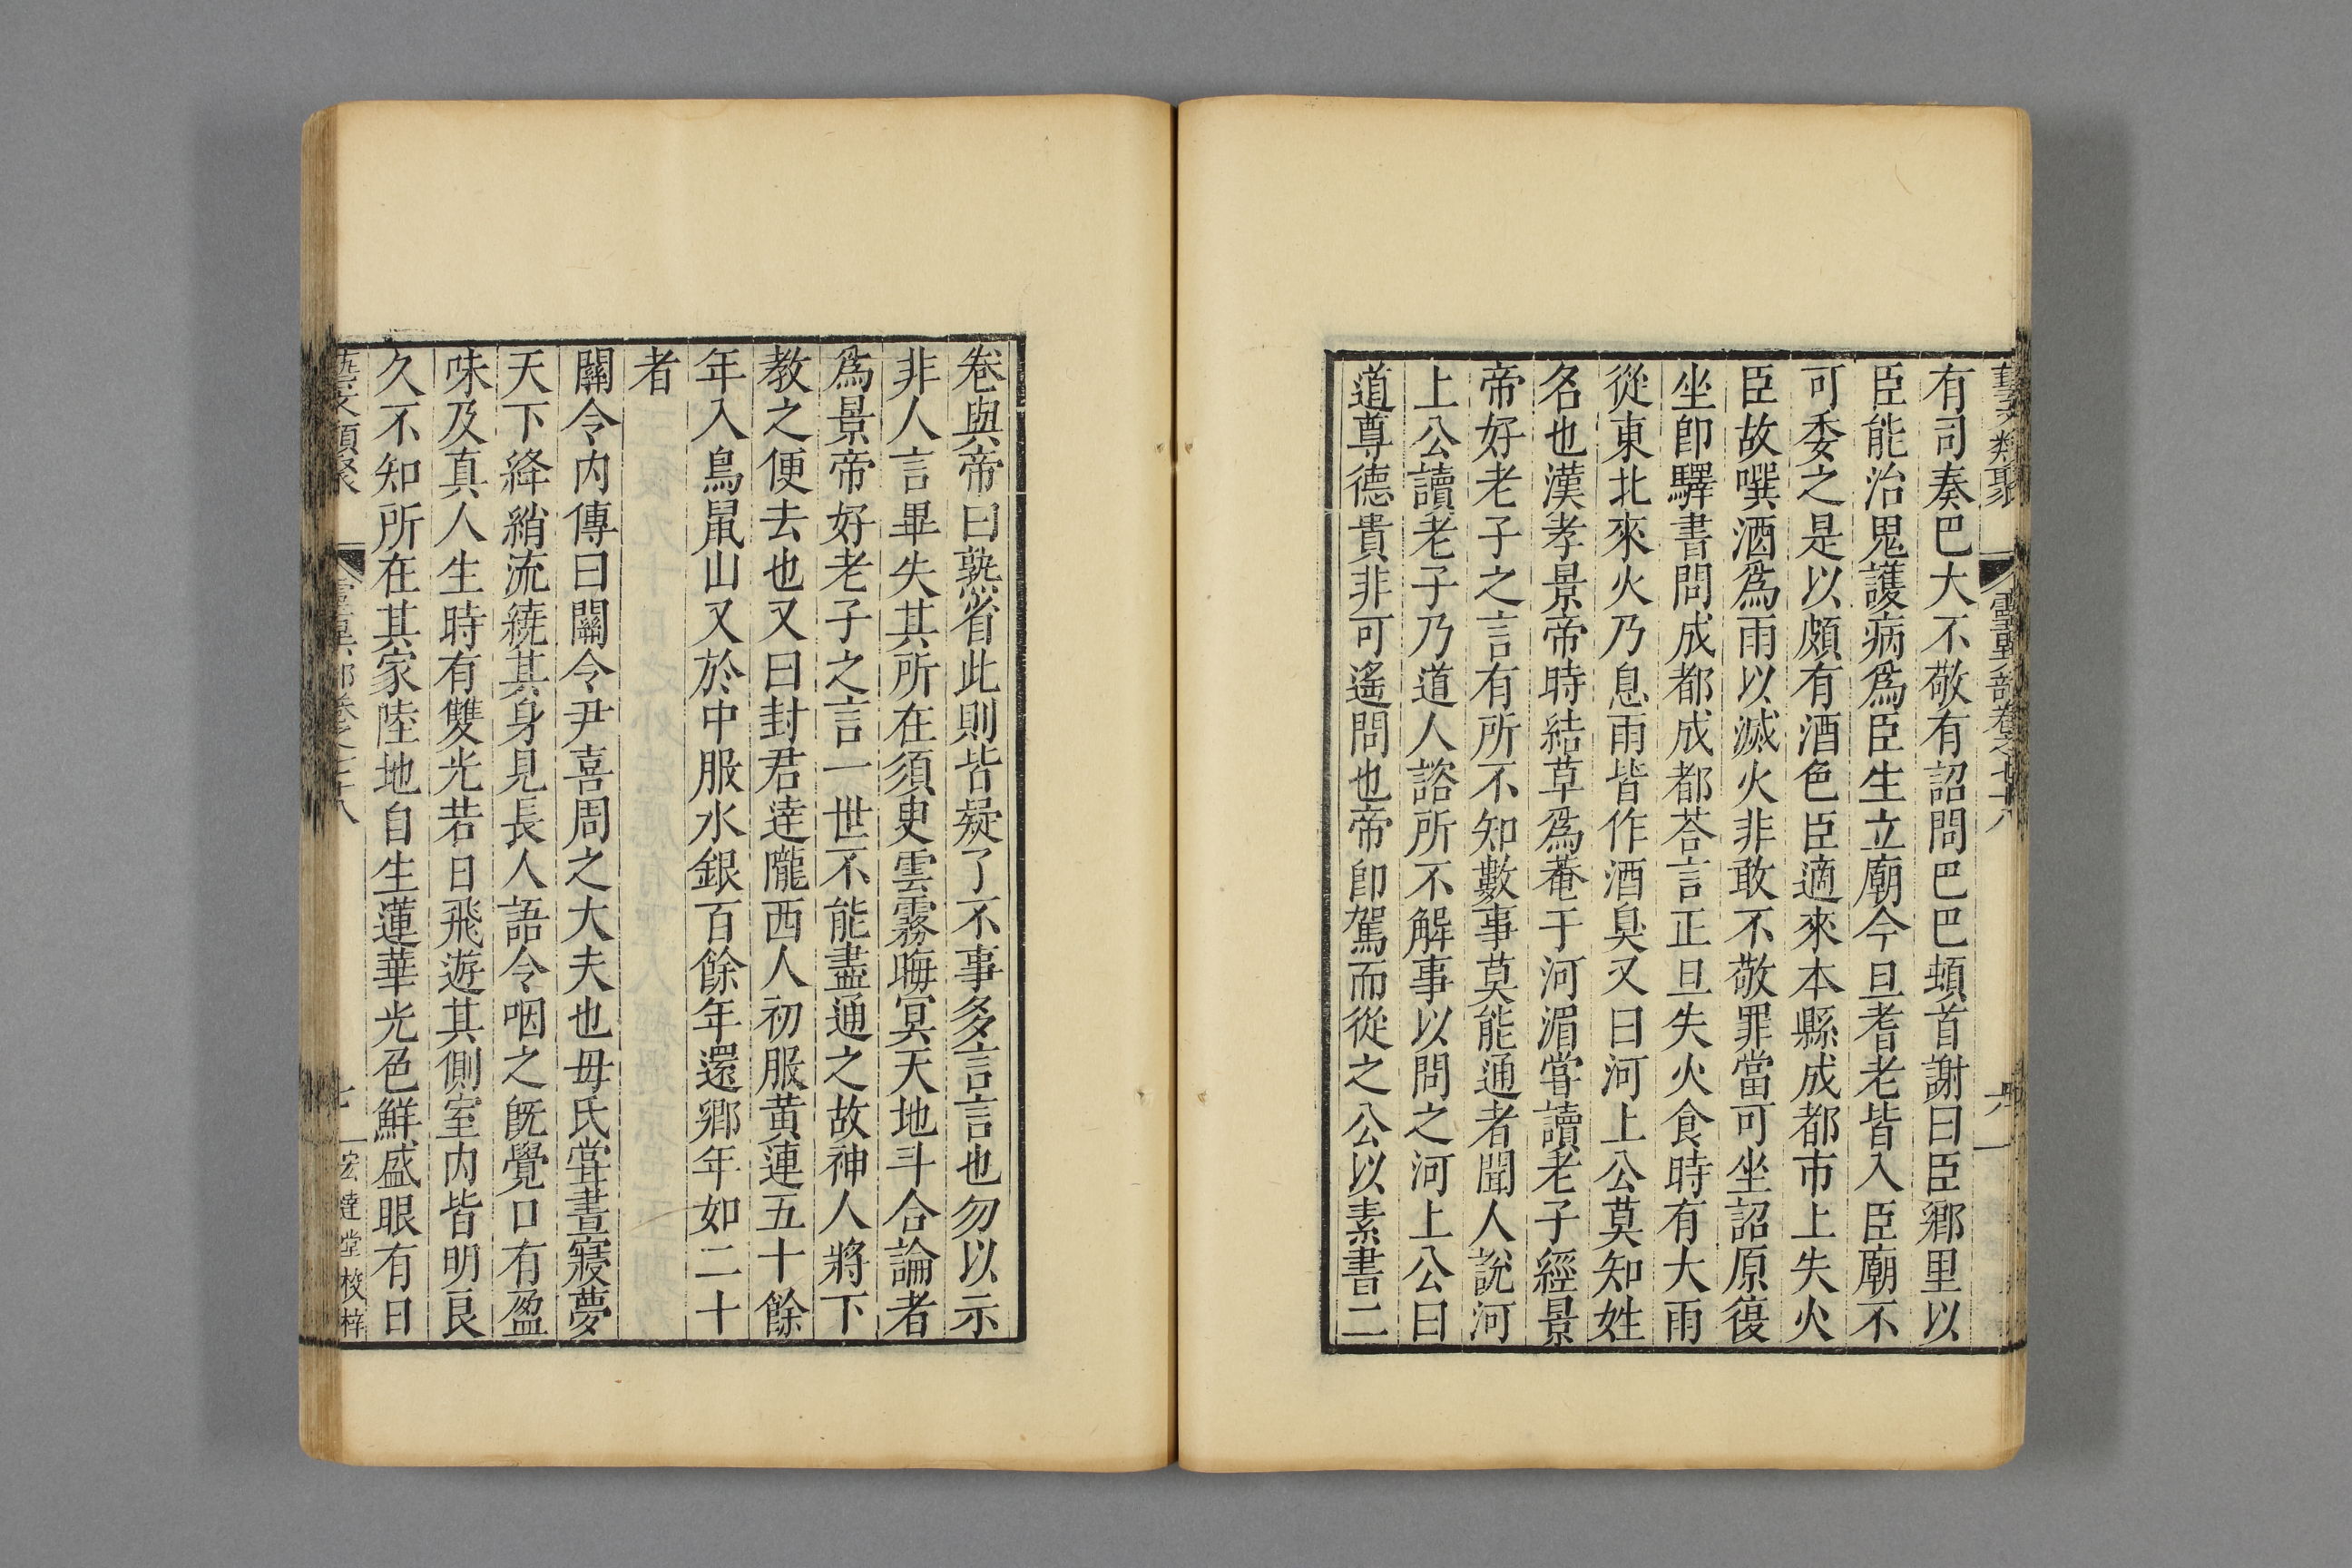 有司奏巴大不敬有詔問巴巴頓首謝曰臣鄉里以
臣能治鬼護病爲臣生立廟今旦耆老皆入臣廟不
可委之是以頗有酒色臣適來本縣成都市上失火
臣故噀酒爲雨以滅火非敢不敬罪當可坐詔原復
坐卽驛書問成都成都荅言正旦失火食時有大雨
從東北來火乃息雨皆作酒臭又曰河上公莫知姓
名也漢孝景帝時結草爲菴于河湄嘗讀老子經景
帝好老子之言有所不知數事莫能通者聞人說河
上公讀老子乃道人諮所不解事以問之河上公曰
道尊德貴非可遙問也帝卽駕而從之公以素書二
卷與帝曰熟省此則皆疑了不事多言言也勿以示
非人言畢失其所在須臾雲霧晦冥天地斗合論者
爲景帝好老子之言一世不能盡通之故神人將下
教之便去也又曰封君達隴西人初服黄連五十餘
年入鳥鼠山又於中服水銀百餘年還鄉年如二十
者
關令内傳曰關令尹喜周之大夫也母氏嘗晝寢夢
天下絳綃流繞其身見長人語令咽之旣覺口有盈
味及真人生時有雙光若日飛遊其側室内皆明良
久不知所在其家陸地自生蓮華光色鮮盛眼有日
藝文類聚
七
宏達堂校梓